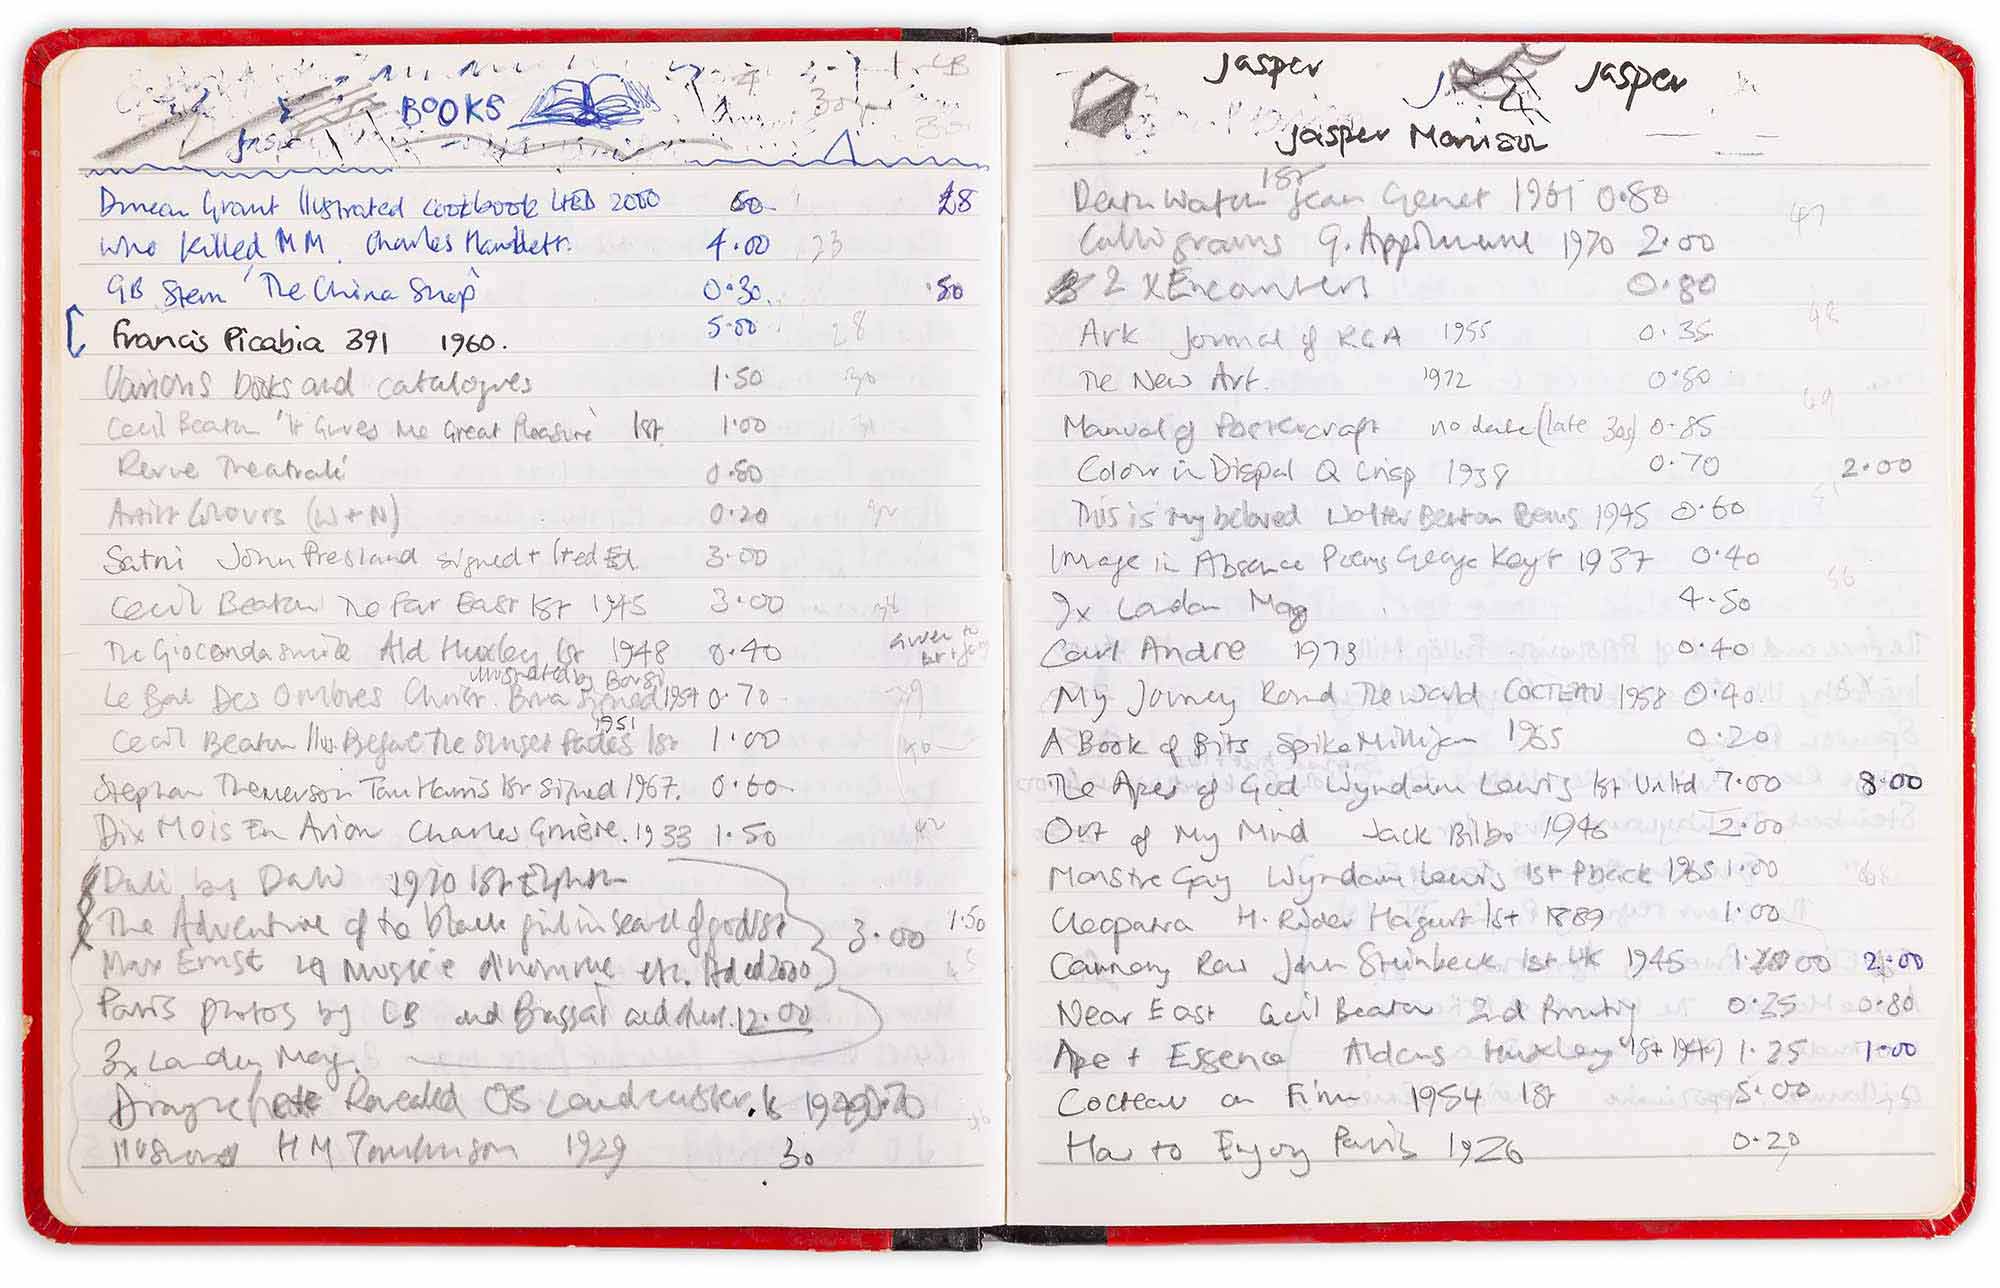 BOOKS
Duncan Grant Illustrated cookbook LtED 2000 60 £8
Who Killed MM. Charles Hamblett. 4.00 23
GB Stern 'The China Shop' 0.30. .50
Francis Picabia 391 1960. 5.00 28
Various books and catalogues 1.50 30
Cecil Beaton 'It Gives Me Great Pleasure' 1st 1.00
Revue Theatrale 0.80
Artist Colours (W+N) 0.20
Satni John Presland signed + lted Ed. 3.00
Cecil Beaton The Far East 1st 1945 3.00
The Gioconda smile Ald Huxley 1st 1948 0.40 given to
illustrated by
Le Bal Des Ombres Christ. signed 0.70
1951
Cecil Beaton Illus. Before The Sunset Fades 1st 1.00 40
Stephan Themerson Tom Harris 1st signed 1967. 0.60
Dix Mois En Avion Charles 1933 1.50 42
Dali by Dali 1970 1st
The Adventure of the black girl in search of god 1st 3.00 1.50
Max Ernst musée etc. lted ed 2000 45
Paris photos by CB and Brassai and 12.00
3x London Mag.
Revealed OS .70
HM Tomlinson 1929 30
Jasper Jasper
Jasper Morrison
1st
Death Watch Jean Genet 1961 0.80 47
Calligrams G. Appolinaire 1970 2.00
2 x Encounters 0.80
Ark Journal of RCA 1955 0.35 48
The New Art. 1972 0.80
Manual of Postercraft no date (late 30s) 0.85 49
Colour in Dispal Q Crisp 1938 0.70 2.00
This is my beloved Walter Benton Poems 1945 0.60
Image in Absence Poems George Keyt 1937 0.40 56
9x London Mag 4.50
Carl Andre 1973 0.40
My Journey Round The World COCTEAU 1958 0.40
A Book of Bits Spike Milligan 1965 0.20
The Apes of God Wyndam Lewis 1st Unltd 7.00 8.00
Out of My Mind Jack Bilbo 1946 2.00
Monstre Gay Wyndam Lewis 1st Pback 1965 1.00
Cleopatra H. Rider Haggart 1st 1889 1.00
Cannery Row John Steinbeck 1st UK 1945 1.00 2.00
Near East Cecil Beaton 2nd Printing 0.35 0.80
Ape + Essence Aldous Huxley 1st 1949 1.25 1.00
Cocteau on Film 1954 1st 5.00
How to Enjoy Paris 1926 0.20